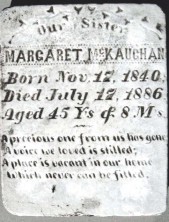 Our Sister
MARGARET McKAUGHAN
Born Nov. 17, 1840,
Died July 17, 1886
Aged 45 Ys & 8 Ms.
A precious one from us has gone
A voice we loved is stilled;
A place is vacant in our home
Which never can be filled.